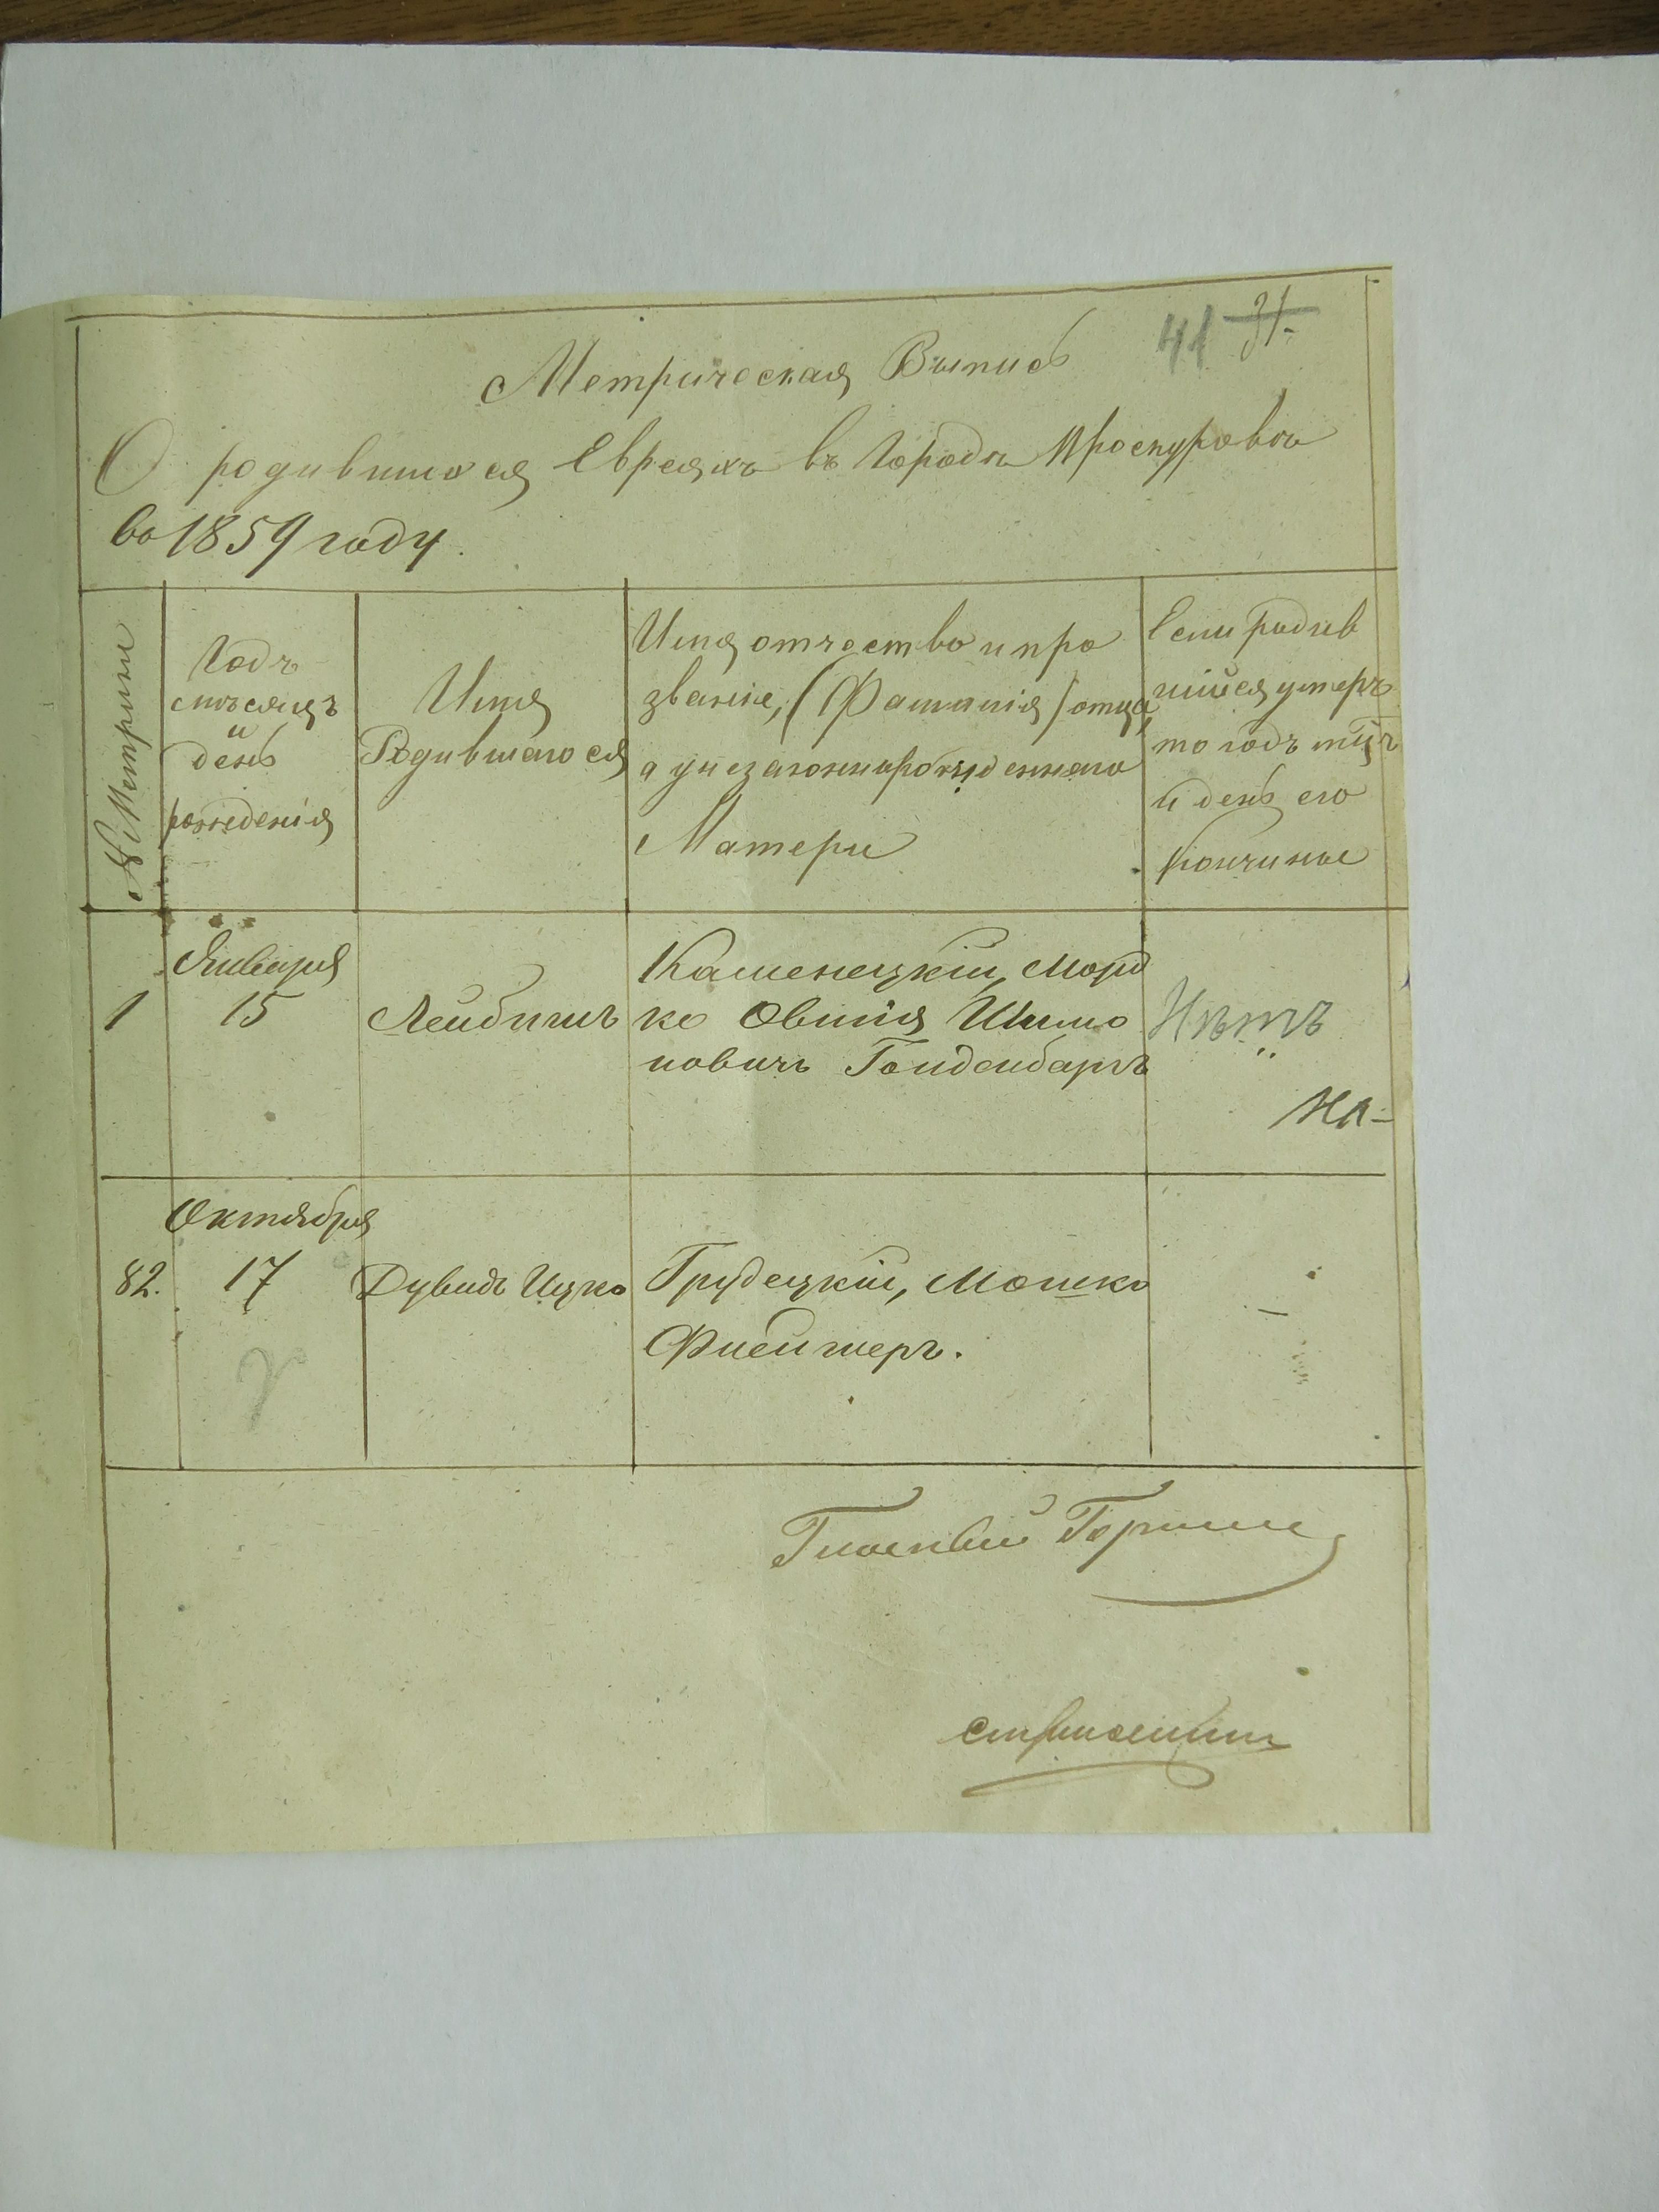 41 31.
Метрическая Выпись
О родившихся Евреяхъ въ Городѣ Проскуровѣ
во 1859 году.
№ Метрики
Годъ
мѣсяцъ
и
день
рожденія
Имя
Родившагося
Имя отчество и про
званіе, (Фамилія) отца,
а у незаконнорожденнаго
Матери
Если родив
шійся умеръ
то годъ мцъ
и день его
кончины
1
Января
15
Лейбишъ
Каменецкій, Морд
ко Овшія Шимо
новичъ Гольденбаргъ
Нѣтъ
82.
Октября
17
Дувидъ Ицко
Грудецкій, Мошко
Флейшеръ.
—